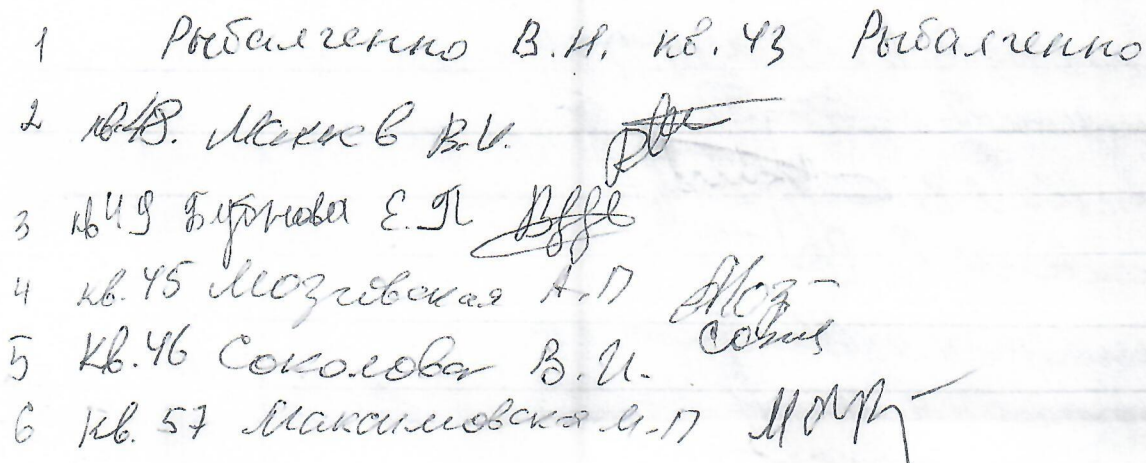 1 Рыбалченко В.Н. кв. 43 Рыбалченко
2 кв.48. Макеев В.И.
3 кв 49 Бубнова Е.П
4 кв. 45 Мозговская А.П Моз
5 Кв. 46 Соколова В.И.
6 Кв. 57 Максимовская М.П